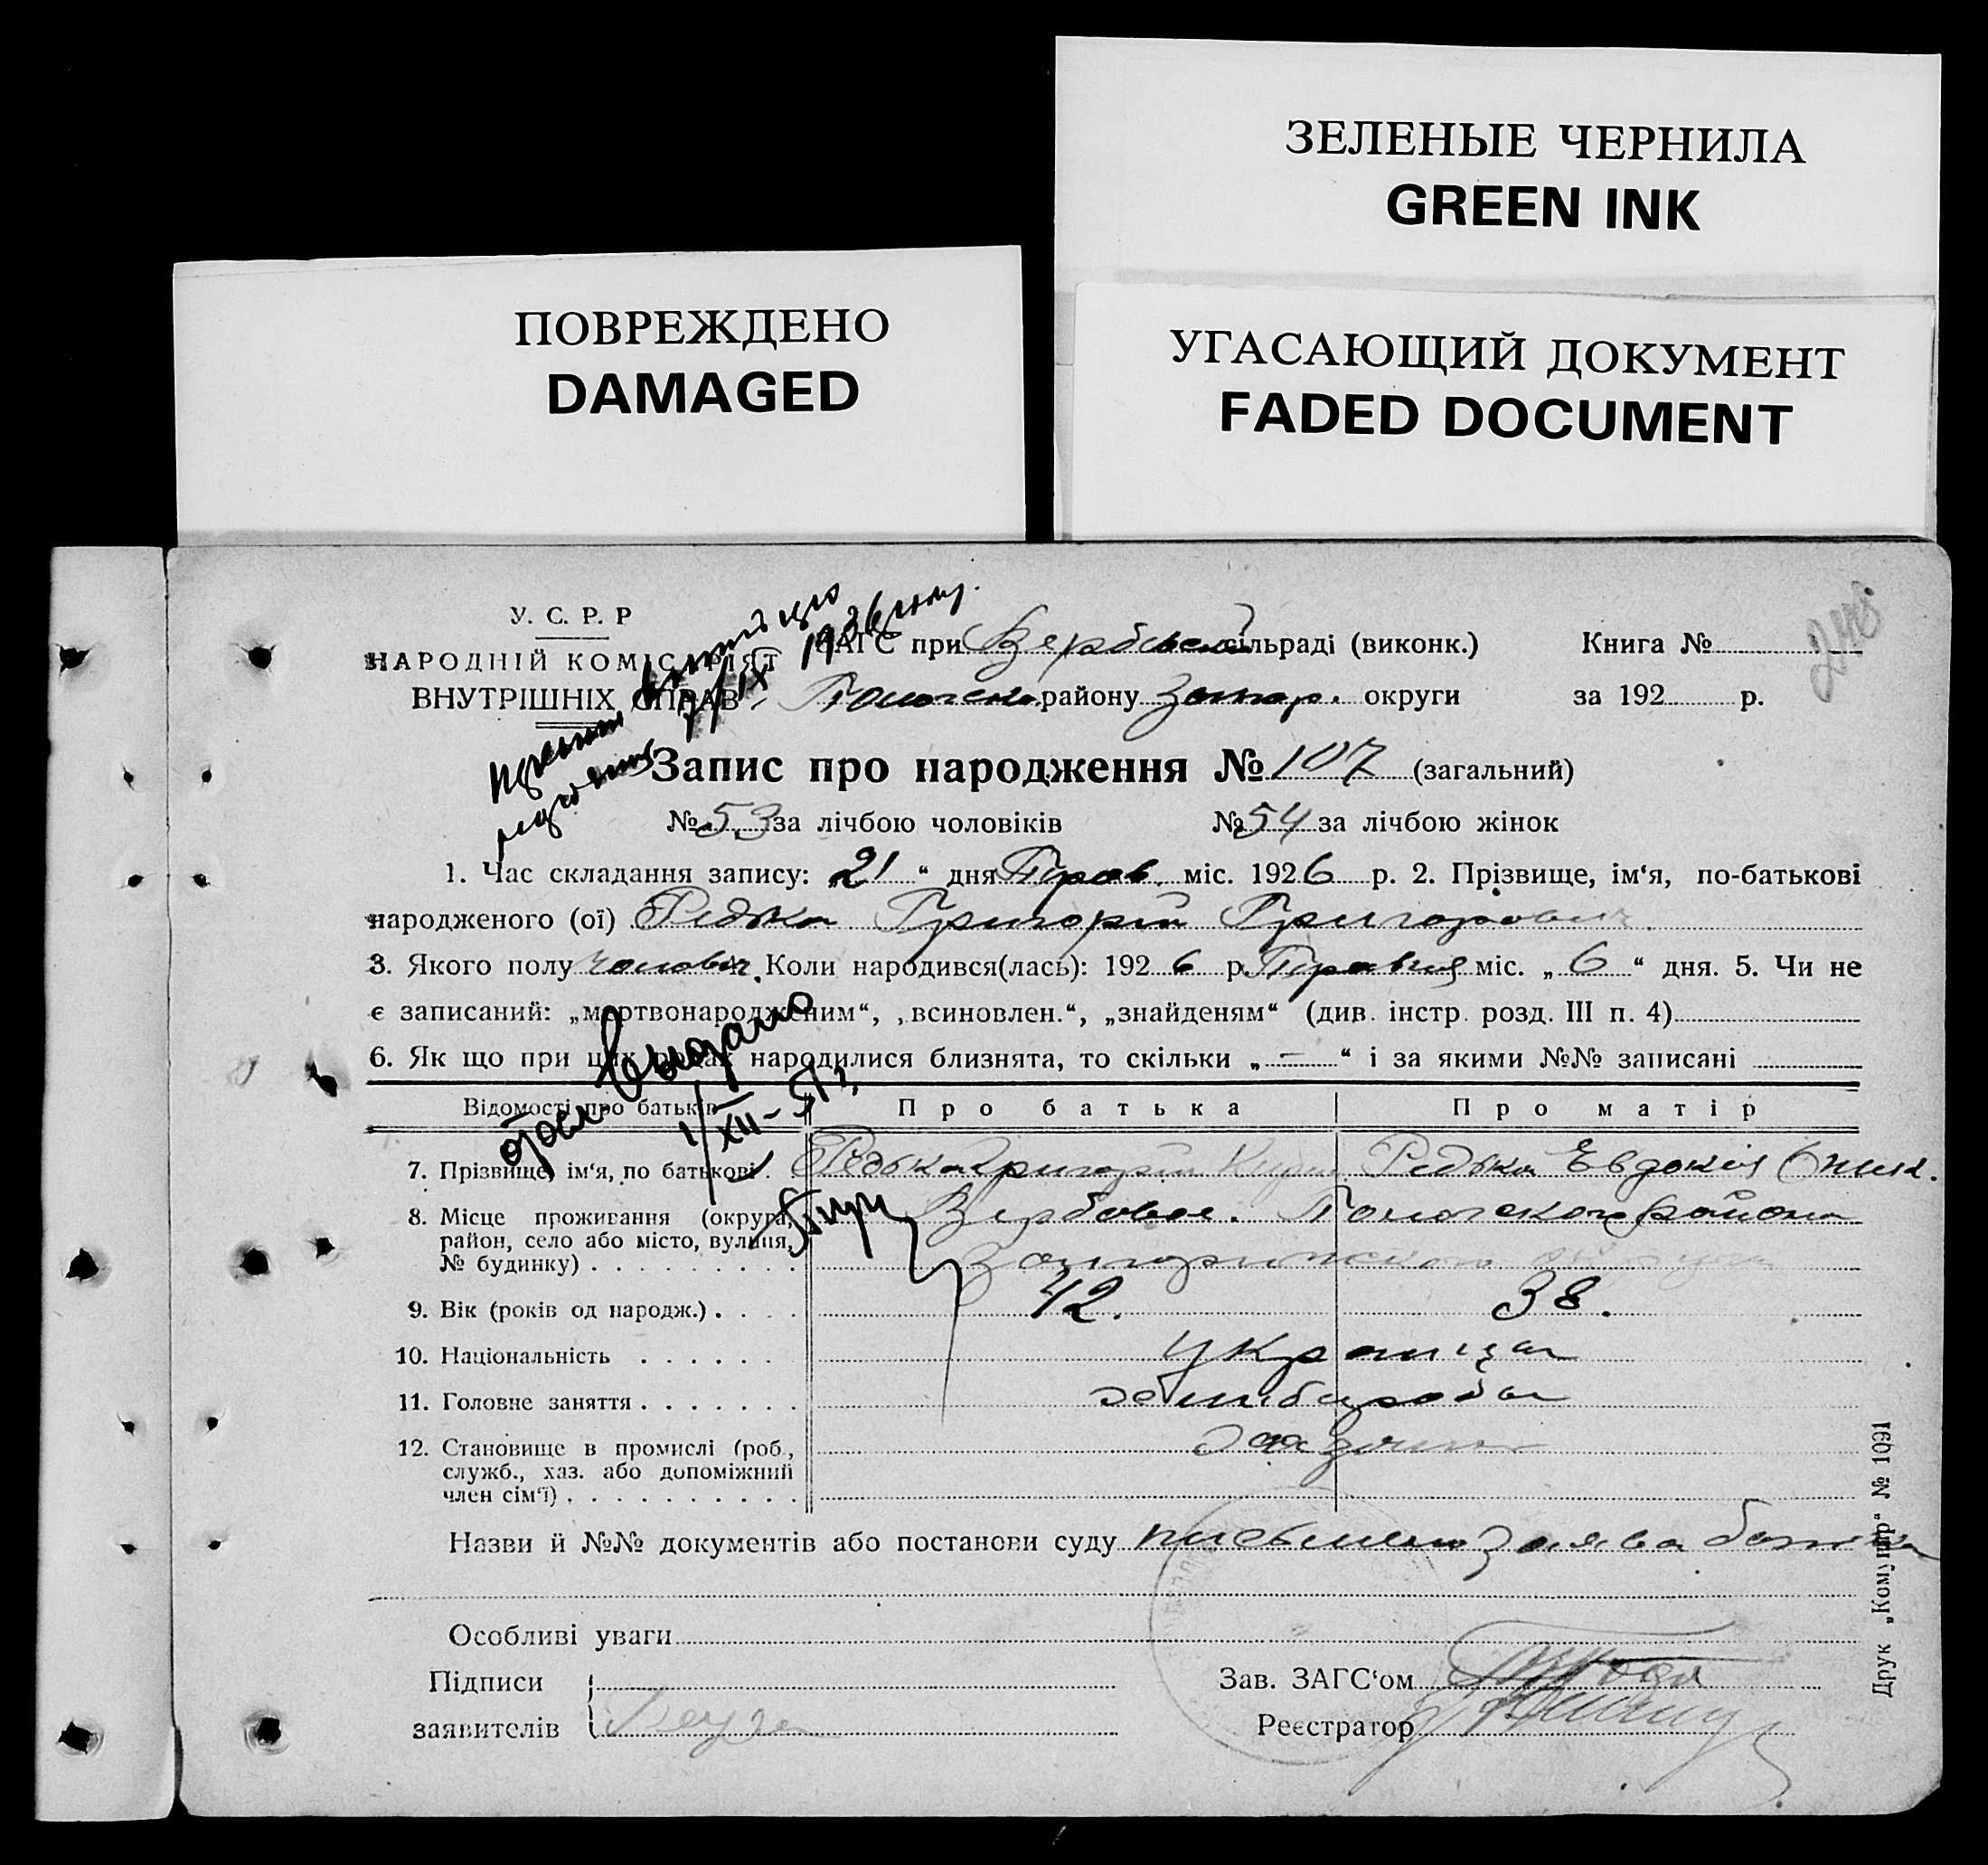 ЗЕЛЕНЫЕ ЧЕРНИЛА
GREEN INK
ПОВРЕЖДЕНО
DAMAGED
УГАСАЮЩИЙ ДОКУМЕНТ
FADED DOCUMENT
248
У. С. Р. Р
НАРОДНІЙ КОМІСАРІЯТ
ВНУТРІШНІХ СПРАВ
1936
ЗАГС при Вербовской сільраді (виконк.) Книга №
району Запор. округи за 192 р.
Запис про народження № 107 (загальний)
№ 53 за лічбою чоловіків № 54 за лічбою жінок
1. Час складання запису: „21“ дня Трав. міс. 1926 р. 2. Прізвище, ім‘я, по-батькові
народженого (ої) Редька Григорій Григорович
3. Якого полу чоловіч. Коли народився(лась): 1926 р. Травня міс. „6“ дня. 5. Чи не
є записаний: „мертвонародженим“, „всиновлен.“, „знайденям“ (див. інстр. розд. III п. 4)
6. Як що при цих родах народилися близнята, то скільки „—“ і за якими №№ записані
Выдано
1/XII-51 г.
Відомості про батьків Про батька Про матір
7. Прізвище, ім‘я, по батькові Редька Григорій Редька Евдокія
8. Місце проживання (округа, район, село або місто, вулиця, № будинку) Вербовое. района
9. Вік (років од народж.) 42. 38.
10. Національність
11. Головне заняття
12. Становище в промислі (роб., служб., хаз. або допоміжний член сім‘ї)
Назви й №№ документів або постанови суду заява батька
Особливі уваги
Підписи
заявителів
Зав. ЗАГС‘ом
Реєстратор
Друк „Комунар“ № 1091